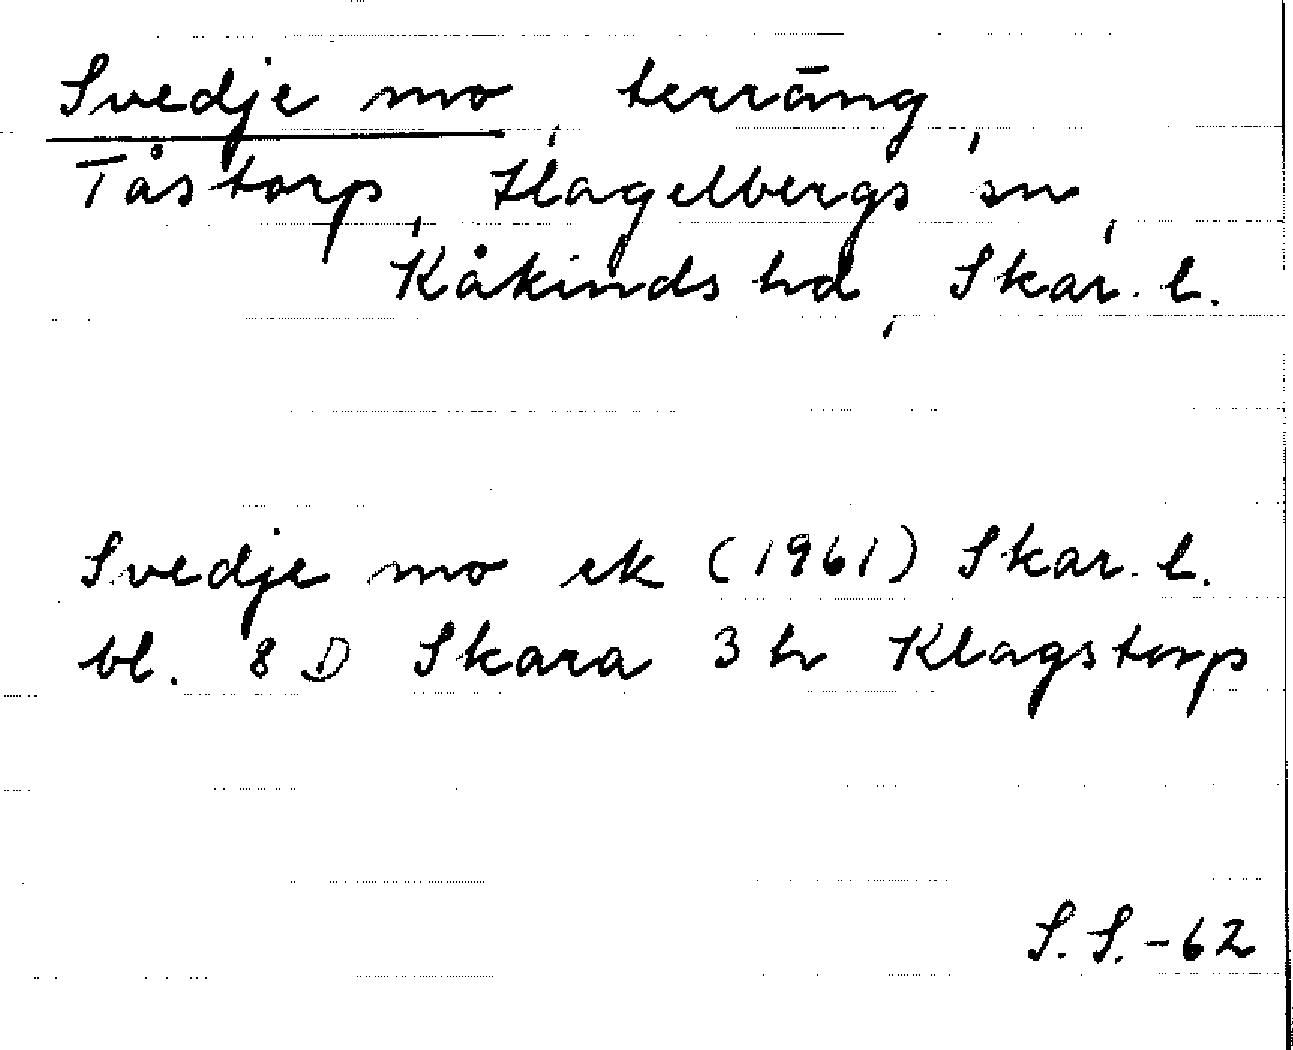 Svedje mo, terräng,
Tåstorp, Hagelbergs sn,
Kåkinds hd, Skar. l.
Svedje mo ek (1961) Skar. l.
bl. 8 D Skara 3 h Klagstorp
S. S. -62